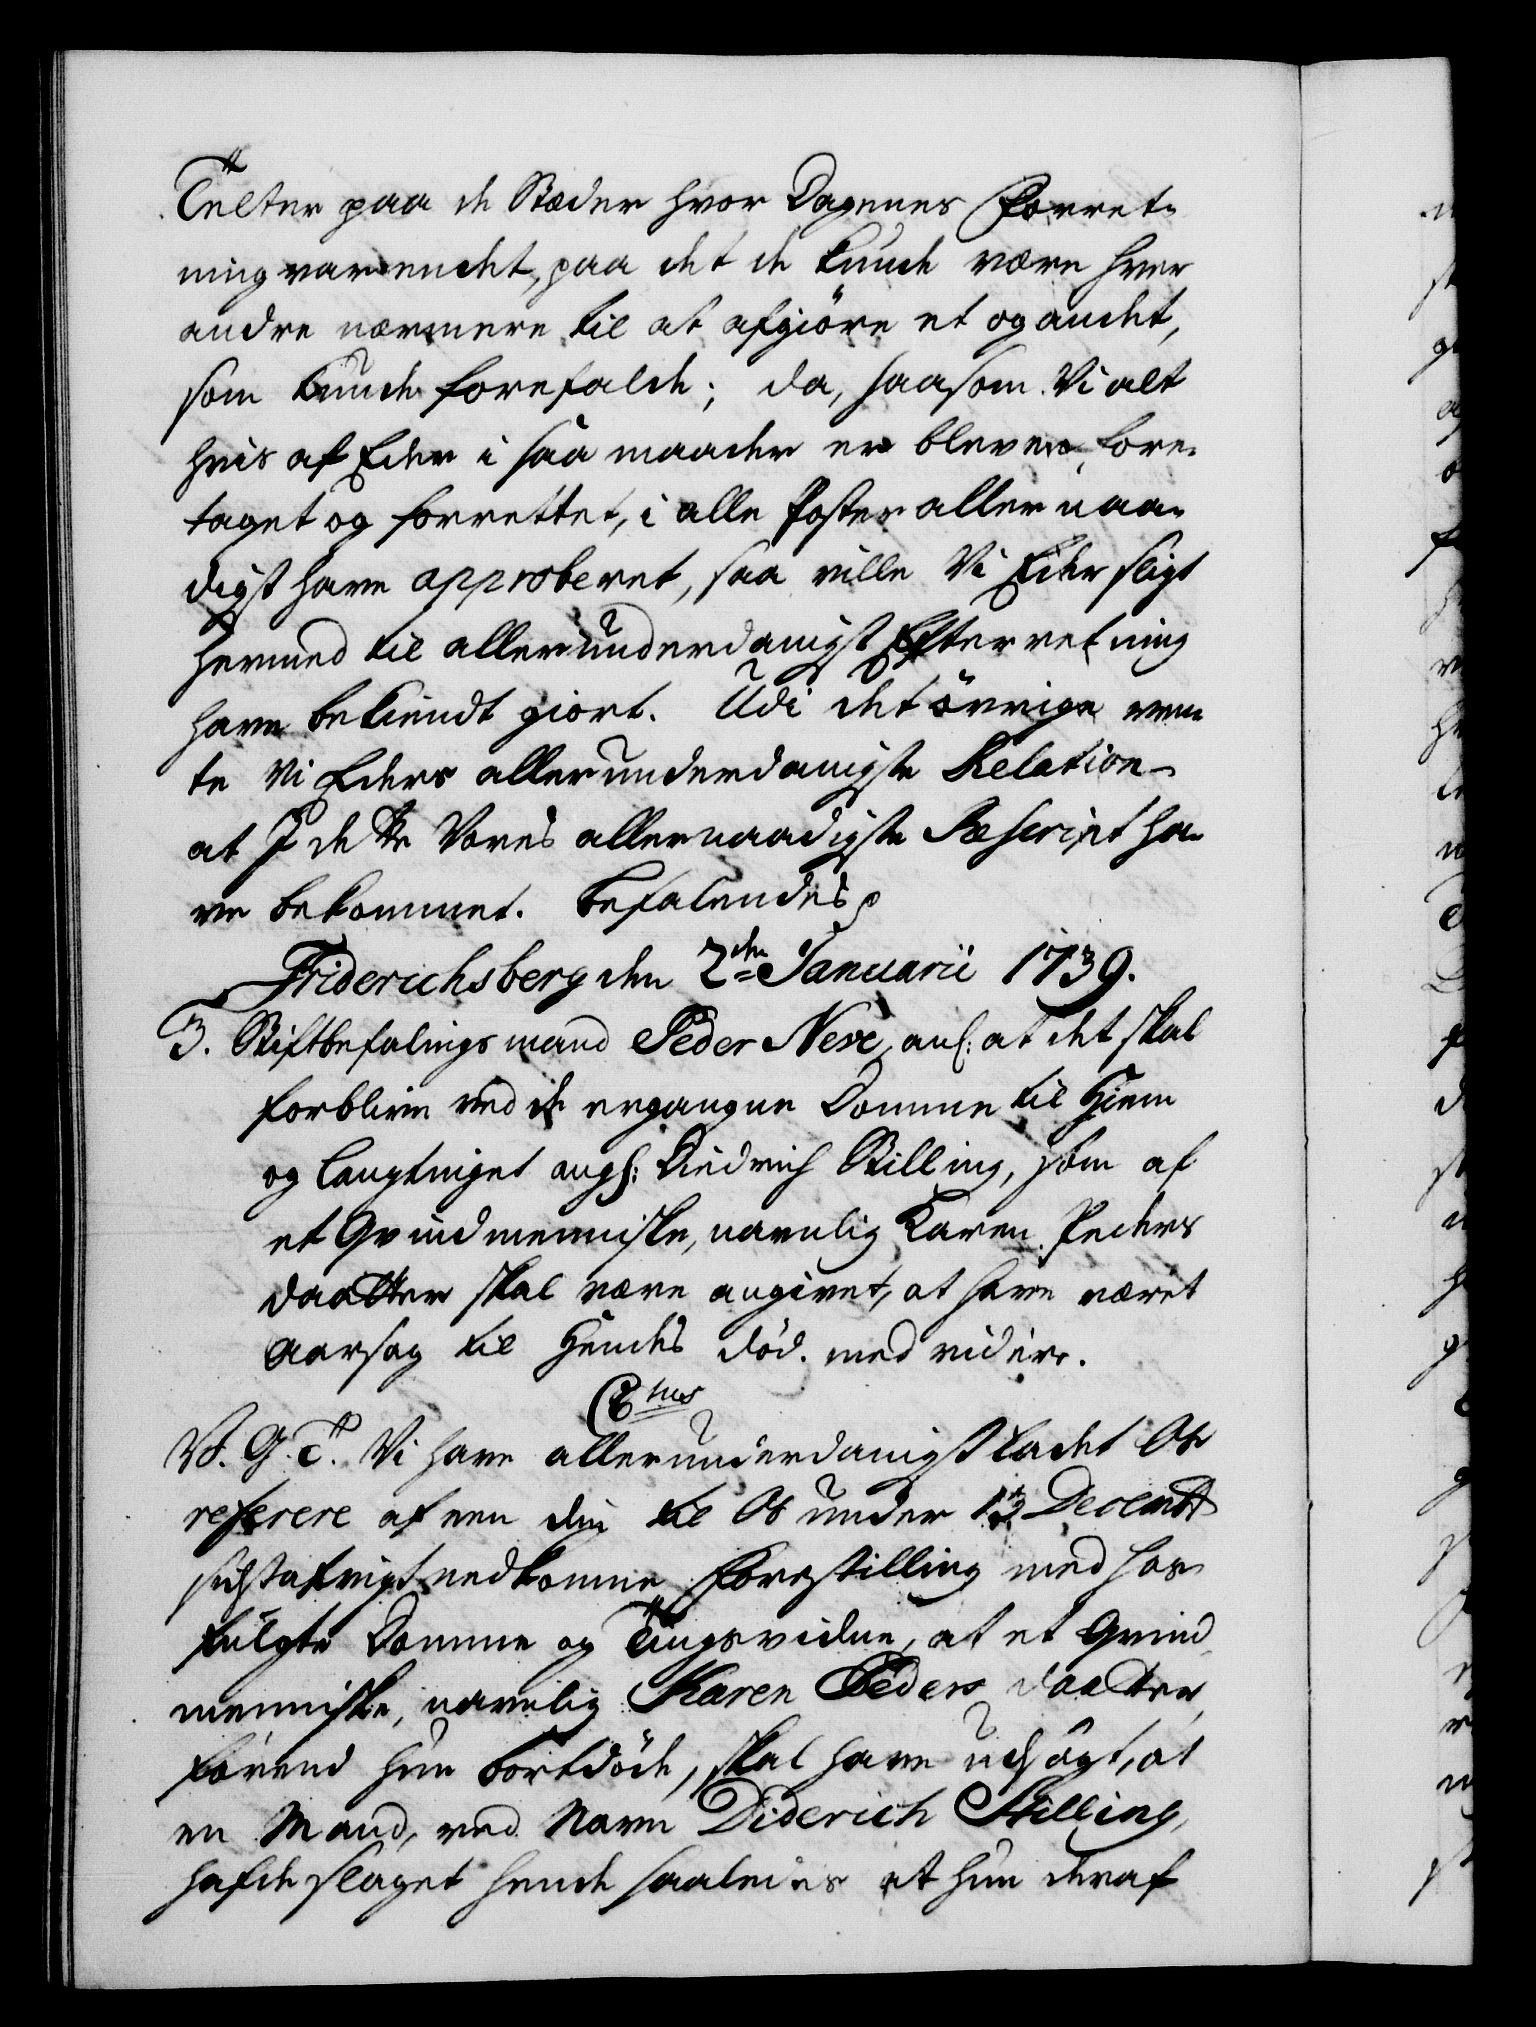 Telter paa de Stæder hvor Dagenes Forret-
ning var endet, paa det de kunde være hver
andre nærmere til at afgiöre et og andet,
som kunde forefalde; da, saasom Vi alt
hvis af Eder i saa maader er bleven fore-
taget og forrettet, i alle Poster allernaa-
digst have approberet, saa ville Vi Eder sligt
hermed til allerunderdanigst Efterretning
have bekiendt giort. Udi det övrige ven-
te Vi Eders allerunderdanigste Relation
at I dette Vores allernaadigste Rescript ha-
ve bekommet. Befalendes
Friderichsberg den 2den Januarii 1739.
3. Stiftbefalingsmand Peder Neve, anl: at det skal
forblive ved de ergangne Domme til Hiem
og Laugtinget angl: Diedrich Stilling, som af
et Qvindmenniske, navnlig Karen Peders
daatter skal være angivet, at have været
Aarsag til Hendes död. med videre.
Ctus
V. G. T. Vi have allerunderdanigst ladet Os
referere af een din til Os under 13 Decembr
sidstafvigt nedkomne Forestilling med hos-
fulgte Domme og Tingsvidne, at et Qvind-
menniske, navnlig Karen Peders daatter,
förend hun bortdöde, skal have udsagt, at
en Mand, ved Navn Diderich Stilling,
hafde slaget hende saaledes at hun deraf